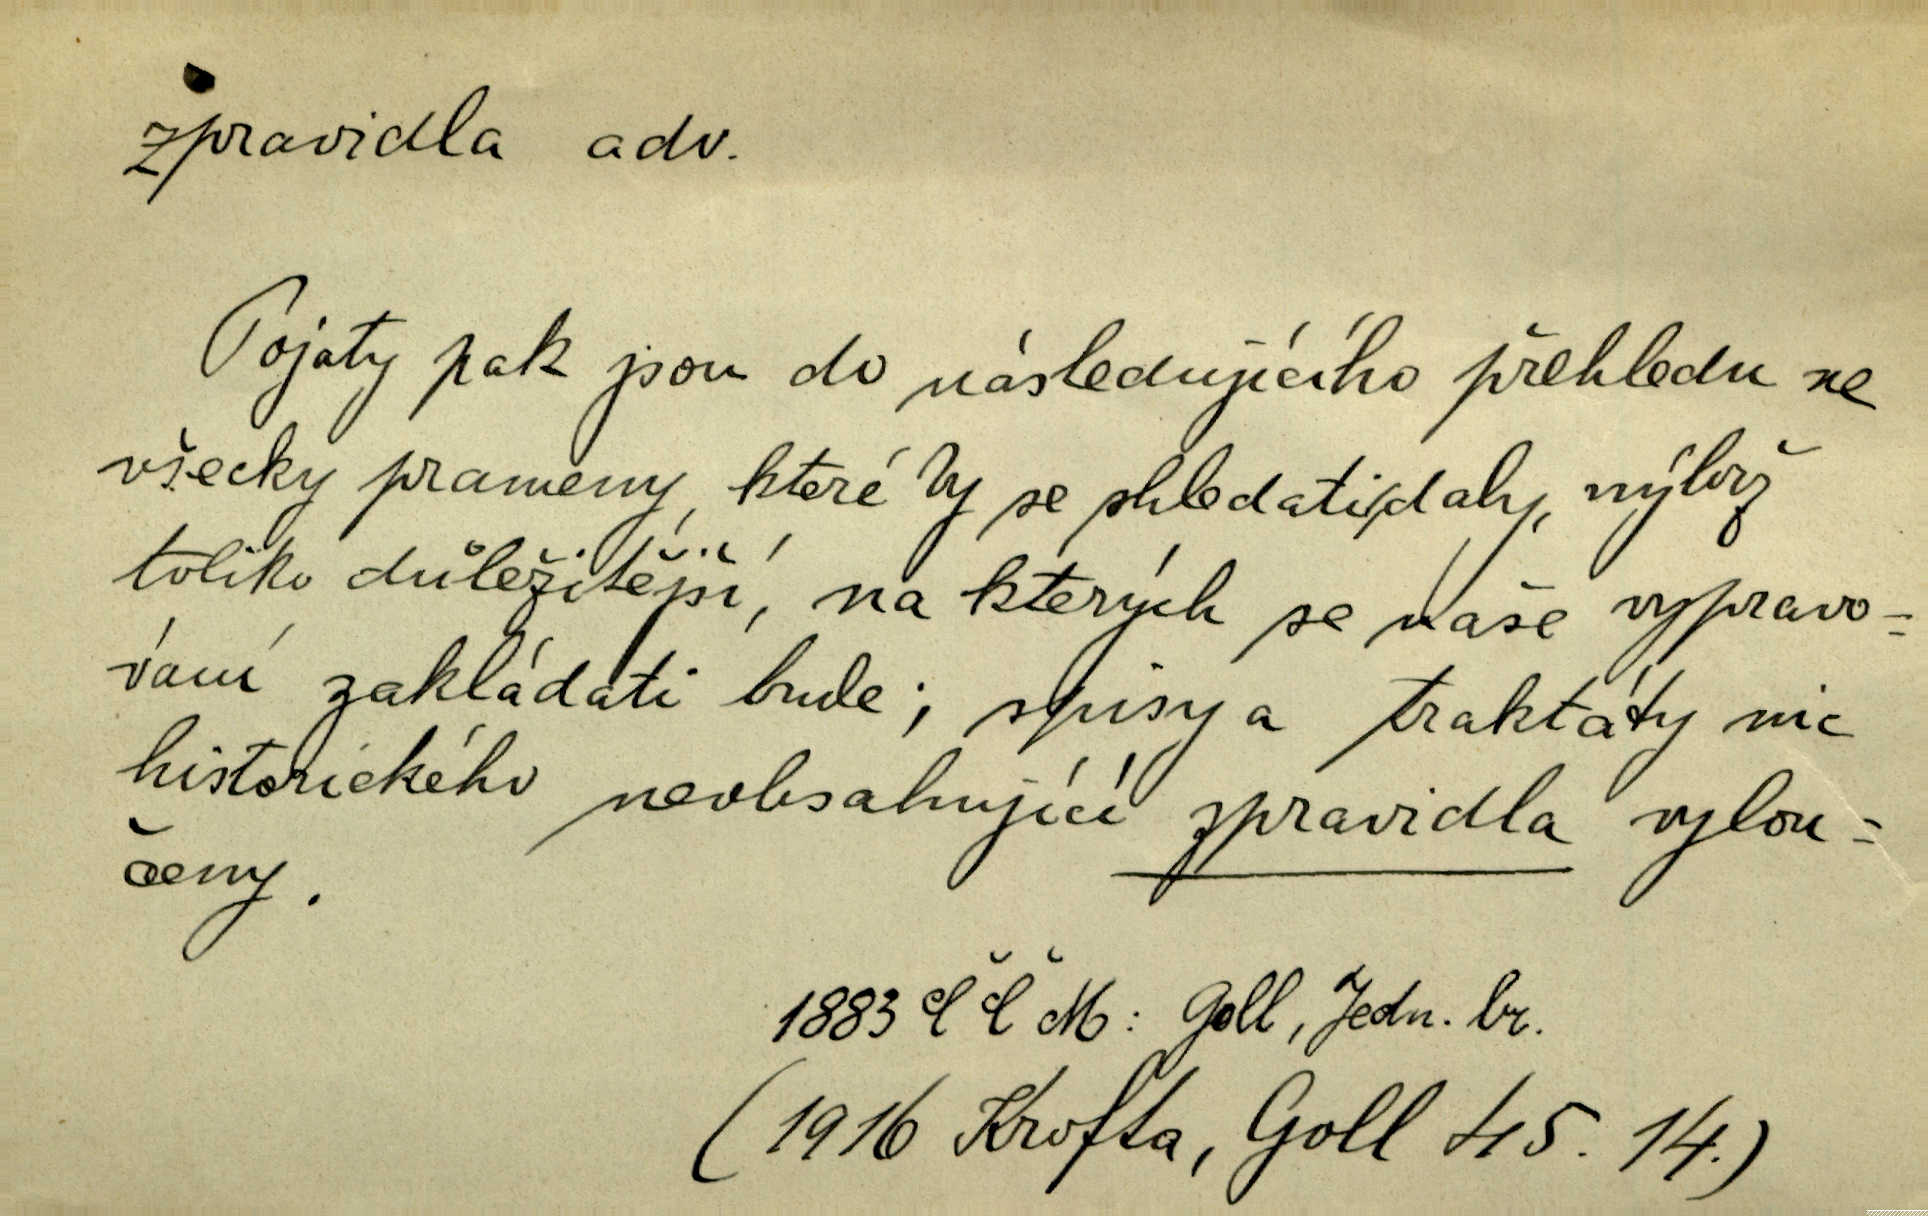 zpravidla adv.
Pojaty pak jsou do následujícího přehledu ne
všecky prameny, které by se shledati daly, nýbrž
toliko důležitější, na kterých se naše vypravo=
vání zakládati bude; spisy a traktáty nic
historického neobsahující zpravidla vylou=
čeny.
1883 ČČM: Goll, Jedn. br.
(1916 Krofta, Goll 45. 14.)